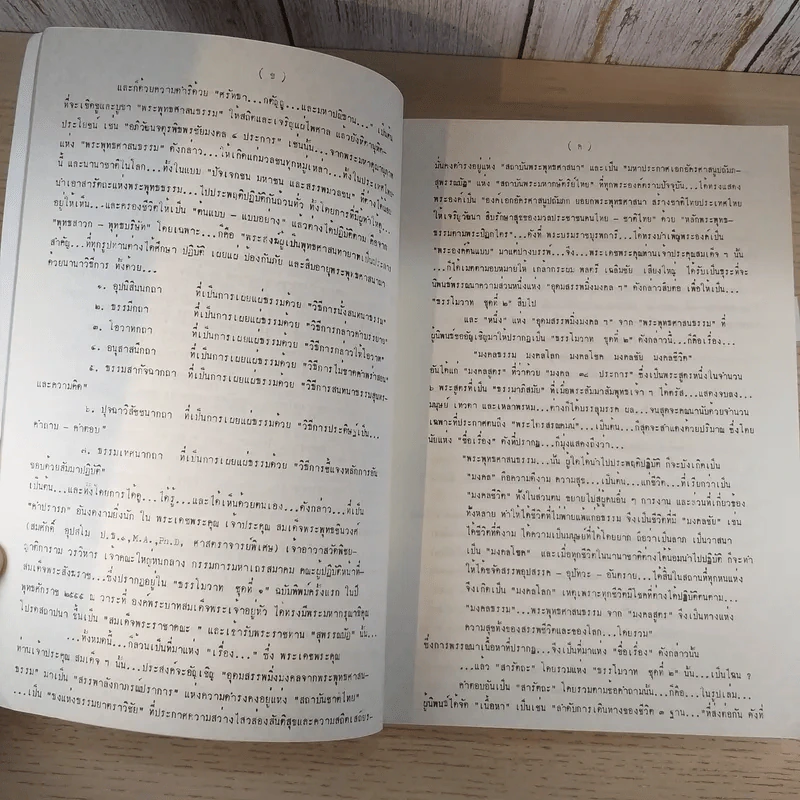 ( ๒ )
และก็ด้วยความดำริด้วย "ศรัทธา...กตัญญู...และมหาปณิธาน..." เป็นต้น
ที่จะเชิดชูและบูชา "พระพุทธศาสนธรรม" ให้สถิตและเจริญแผ่ไพศาล แล้วยังทิฏฐานุคติ-
ประโยชน์ เช่น "อภิวัฒนจตุรพิธพรชัยมงคล ๔ ประการ" เช่นนั้น...จากพระมหาคุณานุภาพ
แห่ง "พระพุทธศาสนธรรม" ดังกล่าว...ให้เกิดแก่มวลชนทุกหมู่เหล่า...ทั้งในประเทศไทย
นี้ และนานาชาติในโลก...ทั้งในแบบ "ปัจเจกชน มหาชน และสรรพมวลชน" ที่ต่างได้น้อม
นำเอาสารัตถะแห่งพระพุทธธรรม...ไปประพฤติปฏิบัติกันถ้วนทั่ว ทั้งโดยการที่มีผู้ทำให้ดู...
อยู่ให้เห็น...และครองชีวิตให้เป็น "คนแบบ - แบบอย่าง" แล้วต่างได้ปฏิบัติตาม คือจาก
"พุทธสาวก - พุทธบริษัท" โดยเฉพาะ...ก็คือ "พระสงฆ์ผู้เป็นพุทธศาสนทายาทเป็นประการ
สำคัญ...ที่ทุกรูปท่านต่างได้ศึกษา ปฏิบัติ เผยแผ่ ป้องกันภัย และสืบอายุพระพุทธศาสนามา
ด้วยนานาวิธีการ ทั้งด้วย...
๑. อุปนิสินนกถา ที่เป็นการเผยแผ่ธรรมด้วย "วิธีการนั่งสนทนาธรรม"
๒. ธรรมีกถา ที่เป็นการเผยแผ่ธรรมด้วย "วิธีการกล่าวคำบรรยาย"
๓. โอวาทกถา ที่เป็นการเผยแผ่ธรรมด้วย "วิธีการกล่าวให้โอวาท"
๔. อนุสาสนีกถา ที่เป็นการเผยแผ่ธรรมด้วย "วิธีการใช้ขาดคำพร่ำสอน"
๕. ธรรมสากัจฉากถา ที่เป็นการเผยแผ่ธรรมด้วย "วิธีการสนทนาธรรมสู่นทร-
และความคิด"
๖. ปุจฉาวิสัชชนากถา ที่เป็นการเผยแผ่ธรรมด้วย "วิธีการประดิษฐ์เป็น...
คำถาม - คำตอบ"
๗. ธรรมเทศนากถา ที่เป็นการเผยแผ่ธรรมด้วย "วิธีการชี้แจงหลักการอัน
ชอบด้วยสัมมาปฏิบัติ"
เป็นต้น...และทั้งโดยการได้ดู...ได้รู้...และได้เห็นด้วยตนเอง...ดังกล่าว...ที่เป็น
"คำปรารภ" อันงดงามยิ่งนัก ใน พระเดชพระคุณ เจ้าประคุณ สมเด็จพระพุทธชินวงศ์
(สมศักดิ์ อุปสโม ป.ธ.๙, M.A., Ph.D, ศาสตราจารย์พิเศษ) เจ้าอาวาสวัดพิชย-
ญาติการาม วรวิหาร เจ้าคณะใหญ่หนกลาง กรรมการมหาเถรสมาคม คณะผู้ปฏิบัติหน้าที่-
สมเด็จพระสังฆราช...ซึ่งปรากฏอยู่ใน "ธรรมโวาท ชุดที่ ๑" ฉบับพิมพ์ครั้งแรก ในปี
พุทธศักราช ๒๕๕๔ ณ วาระที่ องค์พระบาทสมเด็จพระเจ้าอยู่หัว ได้ทรงมีพระมหากรุณาธิคุณ
โปรดสถาปนา ขึ้นเป็น "สมเด็จพระราชาคณะ" และเข้ารับพระราชทาน "สุพรรณบัฏ" นั้น...
...ทั้งหมดนี้...ก็ล้วนเป็นที่มาแห่ง "เรื่อง..." ซึ่ง พระเดชพระคุณ
ท่านเจ้าประคุณ สมเด็จ ฯ นั้น...ประสงค์จะอัญเชิญ "อุดมสรรพมิ่งมงคลจากพระพุทธศาสน-
ธรรม" มาเป็น "สรรพาลังการภรณ์ปราการ" แห่งความดำรงคงอยู่แห่ง "สถาบันชาติไทย"
...เป็น "ธงแห่งธรรมยาตราวิชัย" ที่ประกาศความสว่างไสวส่องสันติสุขและความสถิตเสถียร-
( ๓ )
มั่นคงดำรงอยู่แห่ง "สถาบันพระพุทธศาสนา" และเป็น "มหาประกาศเอกอัครศาสนูปถัมภก-
สุพรรณบัฏ" แห่ง "สถาบันพระมหากษัตริย์ไทย" ที่ทุกพระองค์ตราบปัจจุบัน...ได้ทรงแสดง
พระองค์เป็น "องค์เอกอัครศาสนูปถัมภก ยอยกพระพุทธศาสนา สร้างชาติไทยประเทศไทย
ให้เจริญวัฒนา สืบรักษาสุขของมวลประชาชนคนไทย - ชาติไทย" ด้วย "หลักพระพุทธ-
ธรรมตามพระปิฎกไตร"...ดังที่ พระบรมราชบุรพการี...ได้ทรงบำเพ็ญพระองค์เป็น
"พระองค์ต้นแบบ" มาแต่ปางบรรพ์...จึง...พระเดชพระคุณท่านเจ้าประคุณสมเด็จ ฯ นั้น
...ก็ได้เมตตามอบหมายให้ เกล้ากระผม พลตรี เฉลิมชัย เสียงใหญ่ ได้รับเป็นธุระที่จะ
นิพนธ์พรรณาความส่วนหนึ่งแห่ง "อุดมสรรพมิ่งมงคล ฯ" ดังกล่าวสืบต่อ เพื่อให้เป็น...
"ธรรมโวาท ชุดที่ ๒" สืบไป
และ "หนึ่ง" แห่ง "อุดมสรรพมิ่งมงคล ฯ" จาก "พระพุทธศาสนธรรม" ที่
ผู้นิพนธ์ขออัญเชิญมาให้ปรากฏเป็น "ธรรมโวาท ชุดที่ ๒" ดังกล่าวนี้...ก็คือเรื่อง...
"มงคลธรรม มงคลโลก มงคลโชค มงคลชัย มงคลชีวิต"
อันได้แก่ "มงคลสูตร" ที่ว่าด้วย "มงคล ๓๘ ประการ" ซึ่งเป็นพระสูตรหนึ่งในจำนวน
๖ พระสูตรที่เป็น "ธรรมาภิสมัย" ที่เมื่อพระสัมมาสัมพุทธเจ้า ฯ ได้ตรัส...แสดงจบลง...
มนุษย์ เทวดา และเหล่าพรหม...ต่างก็ได้บรรลุมรรค ผล...จนสุดจะคณานับด้วยจำนวน
เฉพาะที่ประกาศตนถึง "พระไตรสรณคมน์"...เป็นต้น...ก็สุดจะสำแดงด้วยปริมาณ ซึ่งโดย
นัยแห่ง "ชื่อเรื่อง" ดังที่ปรากฏ...ก็มุ่งแสดงถึงว่า...
"พระพุทธศาสนธรรม...นั้น ผู้ใดได้นำไปประพฤติปฏิบัติ ก็จะบังเกิดเป็น
"มงคล" ก็คือความดีงาม ความสุข...เป็นต้น...แก่ชีวิต...ที่เรียกว่าเป็น
"มงคลชีวิต" ทั้งในส่วนตน ขยายไปสู่บุคคลอื่น ๆ การงาน และส่วนที่เกี่ยวข้อง
ทั้งหลาย ทำให้ได้ชีวิตที่ไม่พ่ายแพ้แก่อธรรม จึงเป็นชีวิตที่มี "มงคลชัย" เช่น
ได้ชีวิตที่ดีงาม ได้ความเป็นมนุษย์ที่ได้โดยยาก ถือว่าเป็นลาภ เป็นวาสนา
เป็น "มงคลโชค" และเมื่อทุกชีวิตในนานาชาติต่างได้น้อมนำไปปฏิบัติ ก็จะทำ
ให้ได้ขจัดสรรพอุปสรรค - อุปัทวะ - อันตราย...ได้สิ้นในสถานที่ทุกหนแห่ง
จึงเกิดเป็น "มงคลโลก" เหตุเพราะทุกชีวิตมีโชคที่ต่างได้ปฏิบัติตนตาม...
"มงคลธรรม"...พระพุทธศาสนธรรม จาก "มงคลสูตร" จึงเป็นทางแห่ง
ความสุขทั้งของสรรพชีวิตและของโลก...โดยรวม"
ซึ่งการพรรณนาเนื้อหาที่ปรากฏ...จึงเป็นที่มาแห่ง "ชื่อเรื่อง" ดังกล่าวนั้น
...แล้ว "สารัตถะ" โดยรวมแห่ง "ธรรมโวาท ชุดที่ ๒" นั้น...เป็นไฉน ?
คำตอบอันเป็น "สารัตถะ" โดยรวมตามขอคำถามนั้น...ก็คือ...ในรูปเล่ม...
ผู้นิพนธ์ได้จัด "เนื้อหา" เป็นเช่น "ลำดับการเดินทางของชีวิต ๓ ฐาน..."ที่ส่งต่อกัน ดังที่